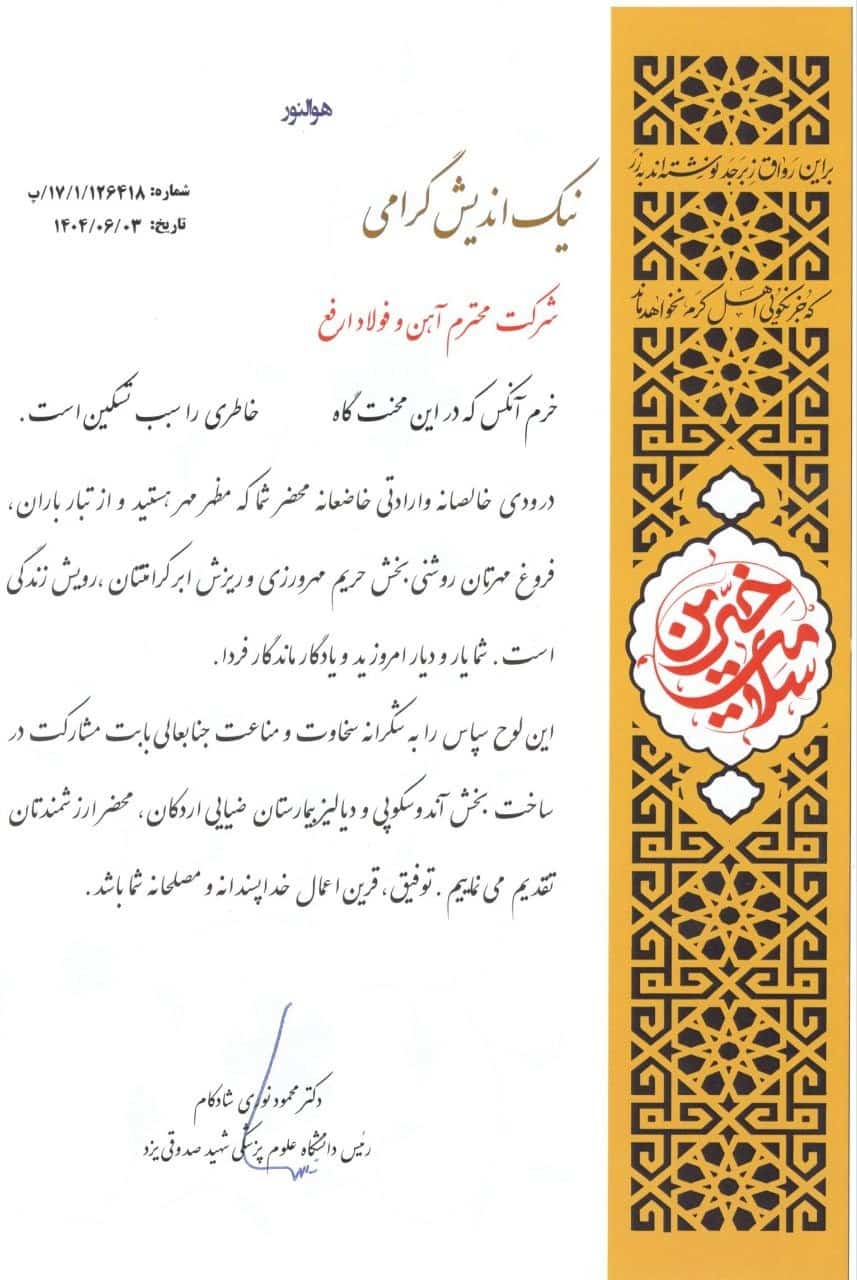 هوالنور
شماره: ۱۷/۱/۱۲۶۴۱۸/ب
تاریخ: ۱۴۰۴/۰۶/۰۳
نیک اندیش گرامی
شرکت محترم آهن و فولاد ارفع
خرم آنکس که در این محنت گاه خاطری را سبب تسکین است .
درودی خالصانه وارادتی خاضعانه محضر شما که مظهر مهر هستید و از تبار باران ،
فروغ مهرتان روشنی بخش حریم مهرورزی و ریزش ابر کرامتتان ،رویش زندگی
است . شما یار و دیار امروزید و یادگار ماندگار فردا.
این لوح سپاس را به شکرانه سخاوت و مناعت جنابعالی بابت مشارکت در
ساخت بخش آندوسکوپی و دیالیز بیمارستان ضیایی اردکان، محضر ارزشمندتان
تقدیم می نماییم . توفیق، قرین اعمال خداپسندانه و مصلحانه شما باشد .
دکتر محمود نوری شادکام
رئیس دانشگاه علوم پزشکی شهید صدوقی یزد
بر این رواق زبرجد نوشته‌اند به زر
که جز نکویی اهل کرم نخواهد ماند
خیرین سلامت